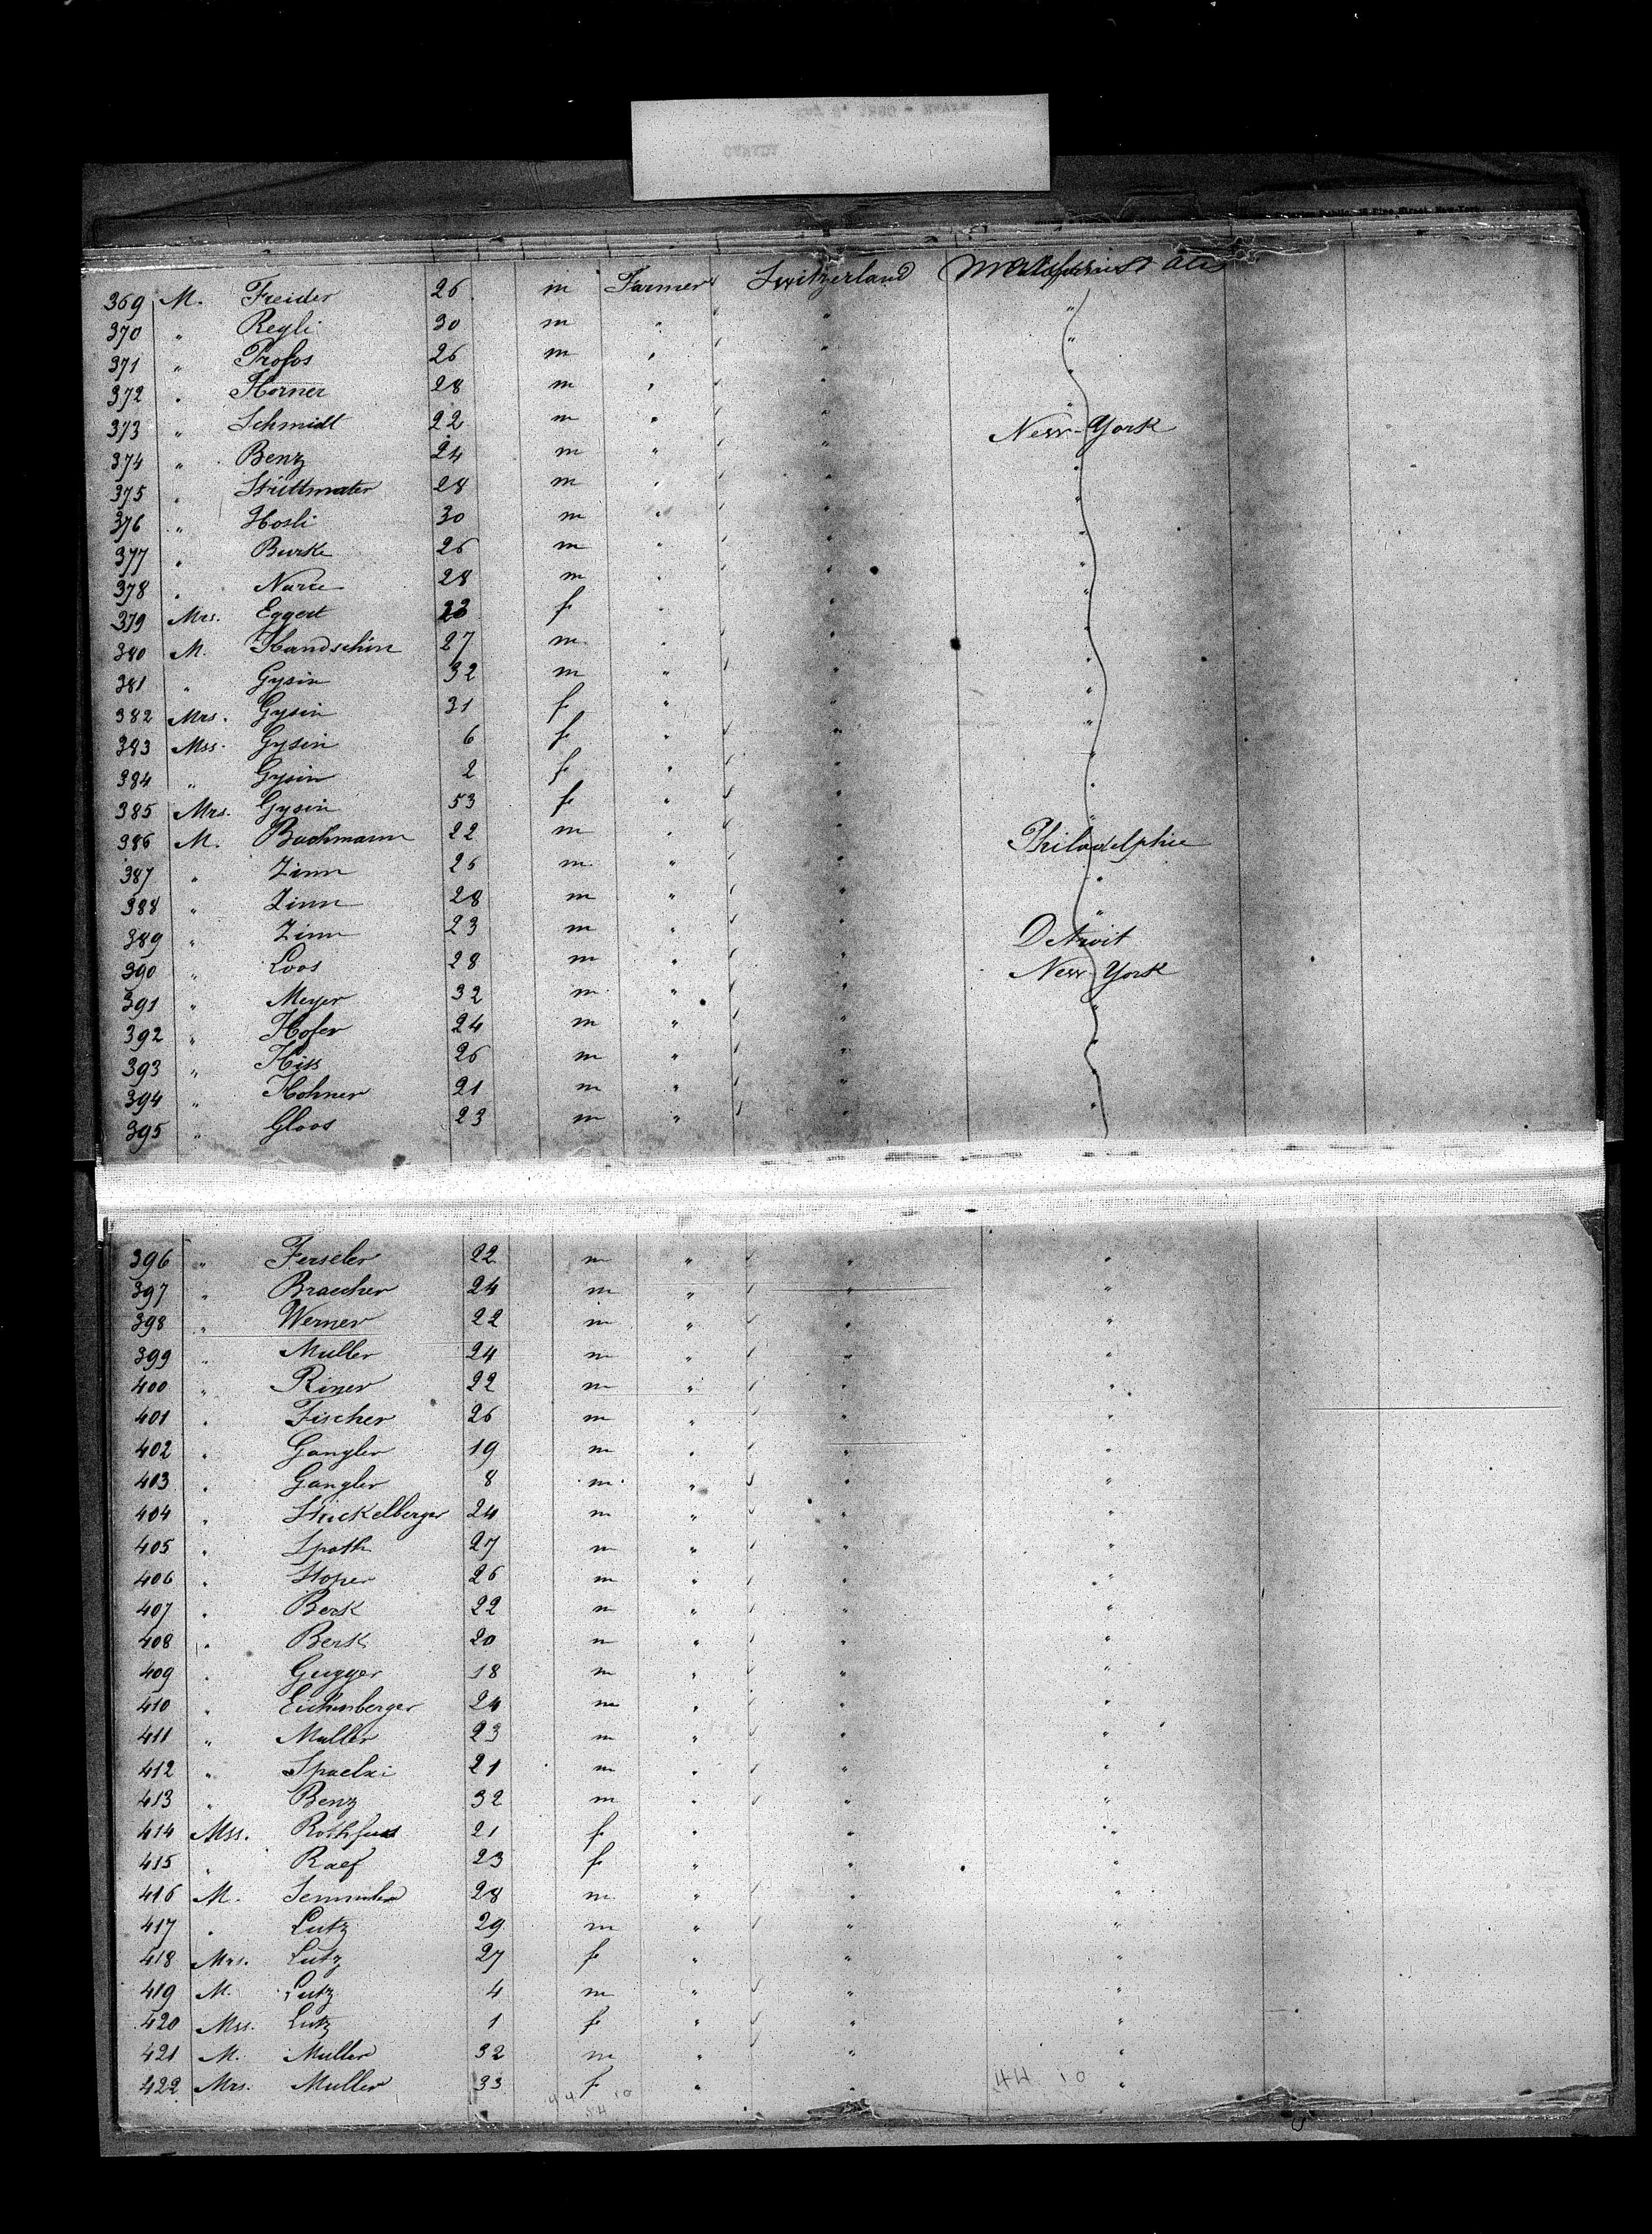 369 M. Freider 26 m Farmer Switzerland
370 " Regli 30 m " " "
371 " Profos 26 m " " "
372 " Horner 28 m " " "
373 " Schmidt 22 m " " New-York
374 " Benz 24 m " " "
375 " Stüttmater 28 m " " "
376 " Hosli 30 m " " "
377 " Burke 26 m " " "
378 " 28 m " " "
379 Mrs. Eggert 23 f " " "
380 M. Handschin 27 m " " "
381 " Gysin 32 m " " "
382 Mrs. Gysin 31 f " " "
383 Mss. Gysin 6 f " " "
384 " Gysin 2 f " " "
385 Mrs. Gysin 53 f " " "
386 M. Bachmann 22 m " " Philadelphie
387 " Zinn 26 m " " "
388 " Zinn 28 m " " "
389 " Zinn 23 m " " Detroit
390 " Loos 28 m " " New-York
391 " Meyer 32 m " " "
392 " Hofer 24 m " " "
393 " Hiss 26 m " " "
394 " Hohner 21 m " " "
395 " Gloos 23 m " " "
396 " Ferseler 22 m " " "
397 " Braecher 24 m " " "
398 " Werner 22 m " " "
399 " Muller 24 m " " "
400 " Riner 22 m " " "
401 " Fischer 26 m " " "
402 " Gangler 19 m " " "
403 " Gangler 8 m " " "
404 " Stückelberger 24 m " " "
405 " Spath 27 m " " "
406 " Stoper 26 m " " "
407 " Berk 22 m " " "
408 " Berk 20 m " " "
409 " Gugger 18 m " " "
410 " Eichenberger 24 m " " "
411 " Muller 23 m " " "
412 " Spaelxi 21 m " " "
413 " Benz 32 m " " "
414 Mss. Rothfuss 21 f " " "
415 " Raef 23 f " " "
416 M. 28 m " " "
417 " Lutz 29 m " " "
418 Mrs. Lutz 27 f " " "
419 M. Lutz 4 m " " "
420 Mss. Lutz 1 f " " "
421 M. Muller 32 m " " "
422 Mrs. Muller 33 f " " "
44 10 44 10
54